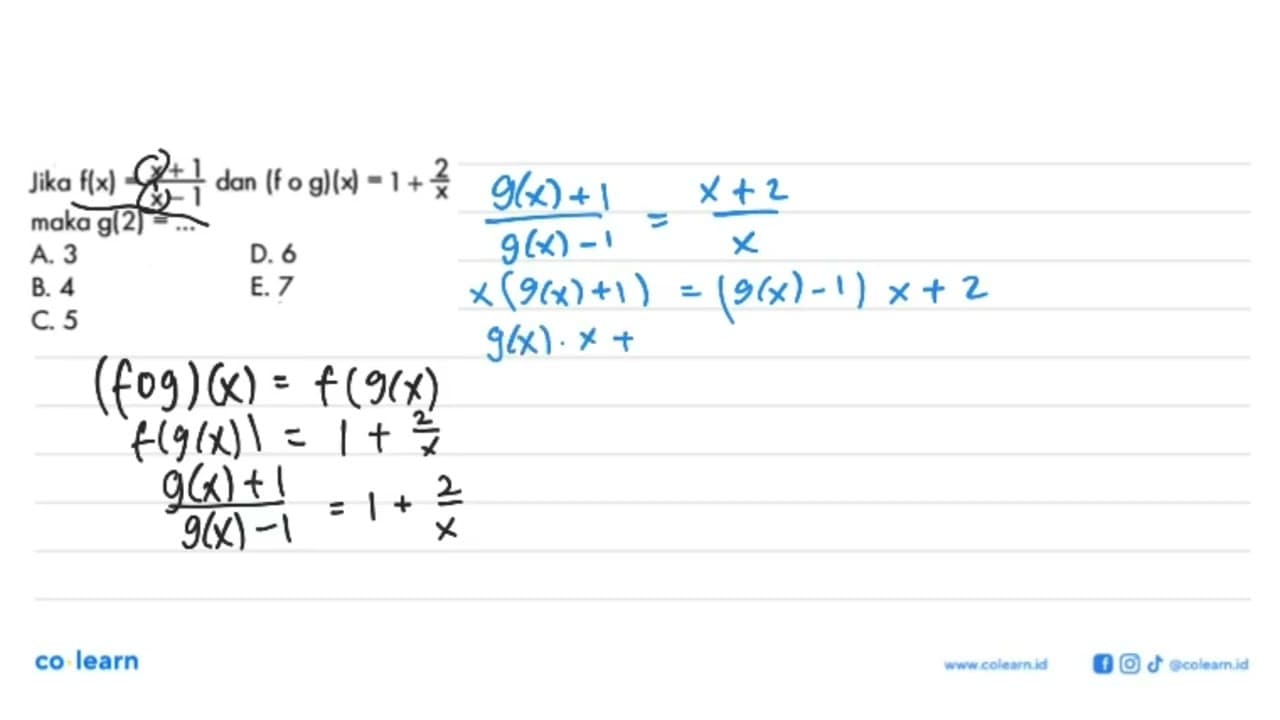 Jika f(x) = x + 1 / x - 1 dan (f o g)(x) = 1 + 2/x
maka g(2) = ...
A. 3
B. 4
C. 5
D. 6
E. 7
(fog)(x) = f(g(x)
f(g(x)) = 1 + 2/x
g(x) + 1 / g(x) - 1 = 1 + 2/x
g(x) + 1 / g(x) - 1 = x + 2 / x
x (g(x) + 1) = (g(x) - 1) x + 2
g(x) . x +
co learn
www.colearn.id
@colearn.id